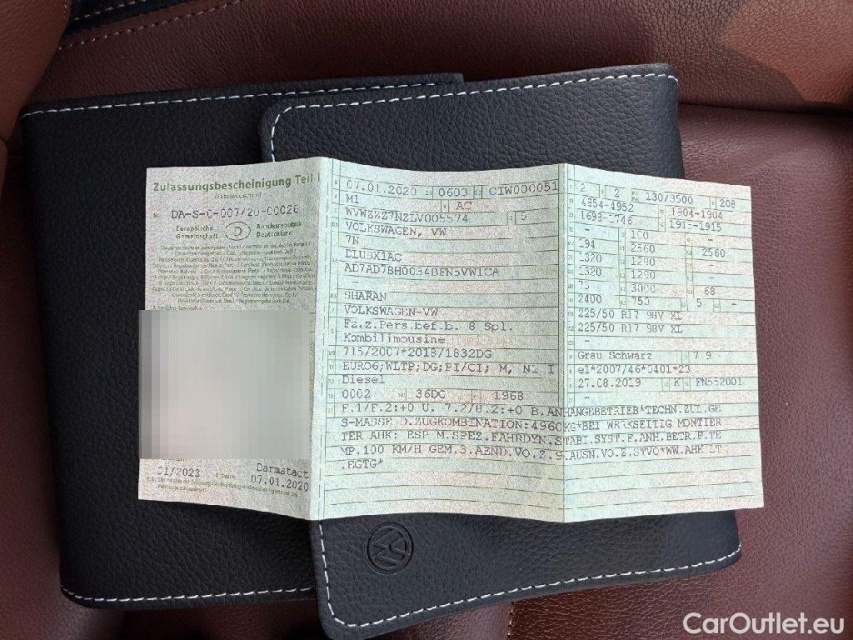 Zulassungsbescheinigung Teil I
Europäische Gemeinschaft
Bundesrepublik Deutschland
01/2023
Darmstadt
07.01.2020
07.01.2020 0603 CIW000051
M1 AC
5
VOLKSWAGEN, VW
7N
SHARAN
VOLKSWAGEN-VW
Fz.z.Pers.bef.b. 8 Spl.
Kombilimousine
715/2007*2018/1832DG
EURO6;WLTP;DG;PI/CI; M, N1 I
Diesel
0002 36DG 1968
F.1/F.2:+0 U. 7.2/8.2:+0 B.ANHÄNGEBETRIEB*TECHN.ZUL.GE
S-MASSE D.ZUGKOMBINATION:4960KG*BEI WERKSEITIG MONTIER
TER AHK: ESP M.SPEZ.FAHRDYN.STABI.SYST.F.ANH.BETR.F.TE
MP.100 KM/H GEM.3.AEND.VO.Z.9.AUSN.VO.Z.STVO*WW.AHK LT
.EGTG*
2 2 130/3500 208
4854-4952 1904-1904
1698-1746 191--1915
- 100 -
194 2560 2560
1320 1290 -
1320 1290 -
75 3000 68
2400 750 5 -
225/50 R17 98V XL
225/50 R17 98V XL
-
Grau Schwarz 7 9
e1*2007/46*0401*23
27.08.2019 K FN552001
CarOutlet.eu